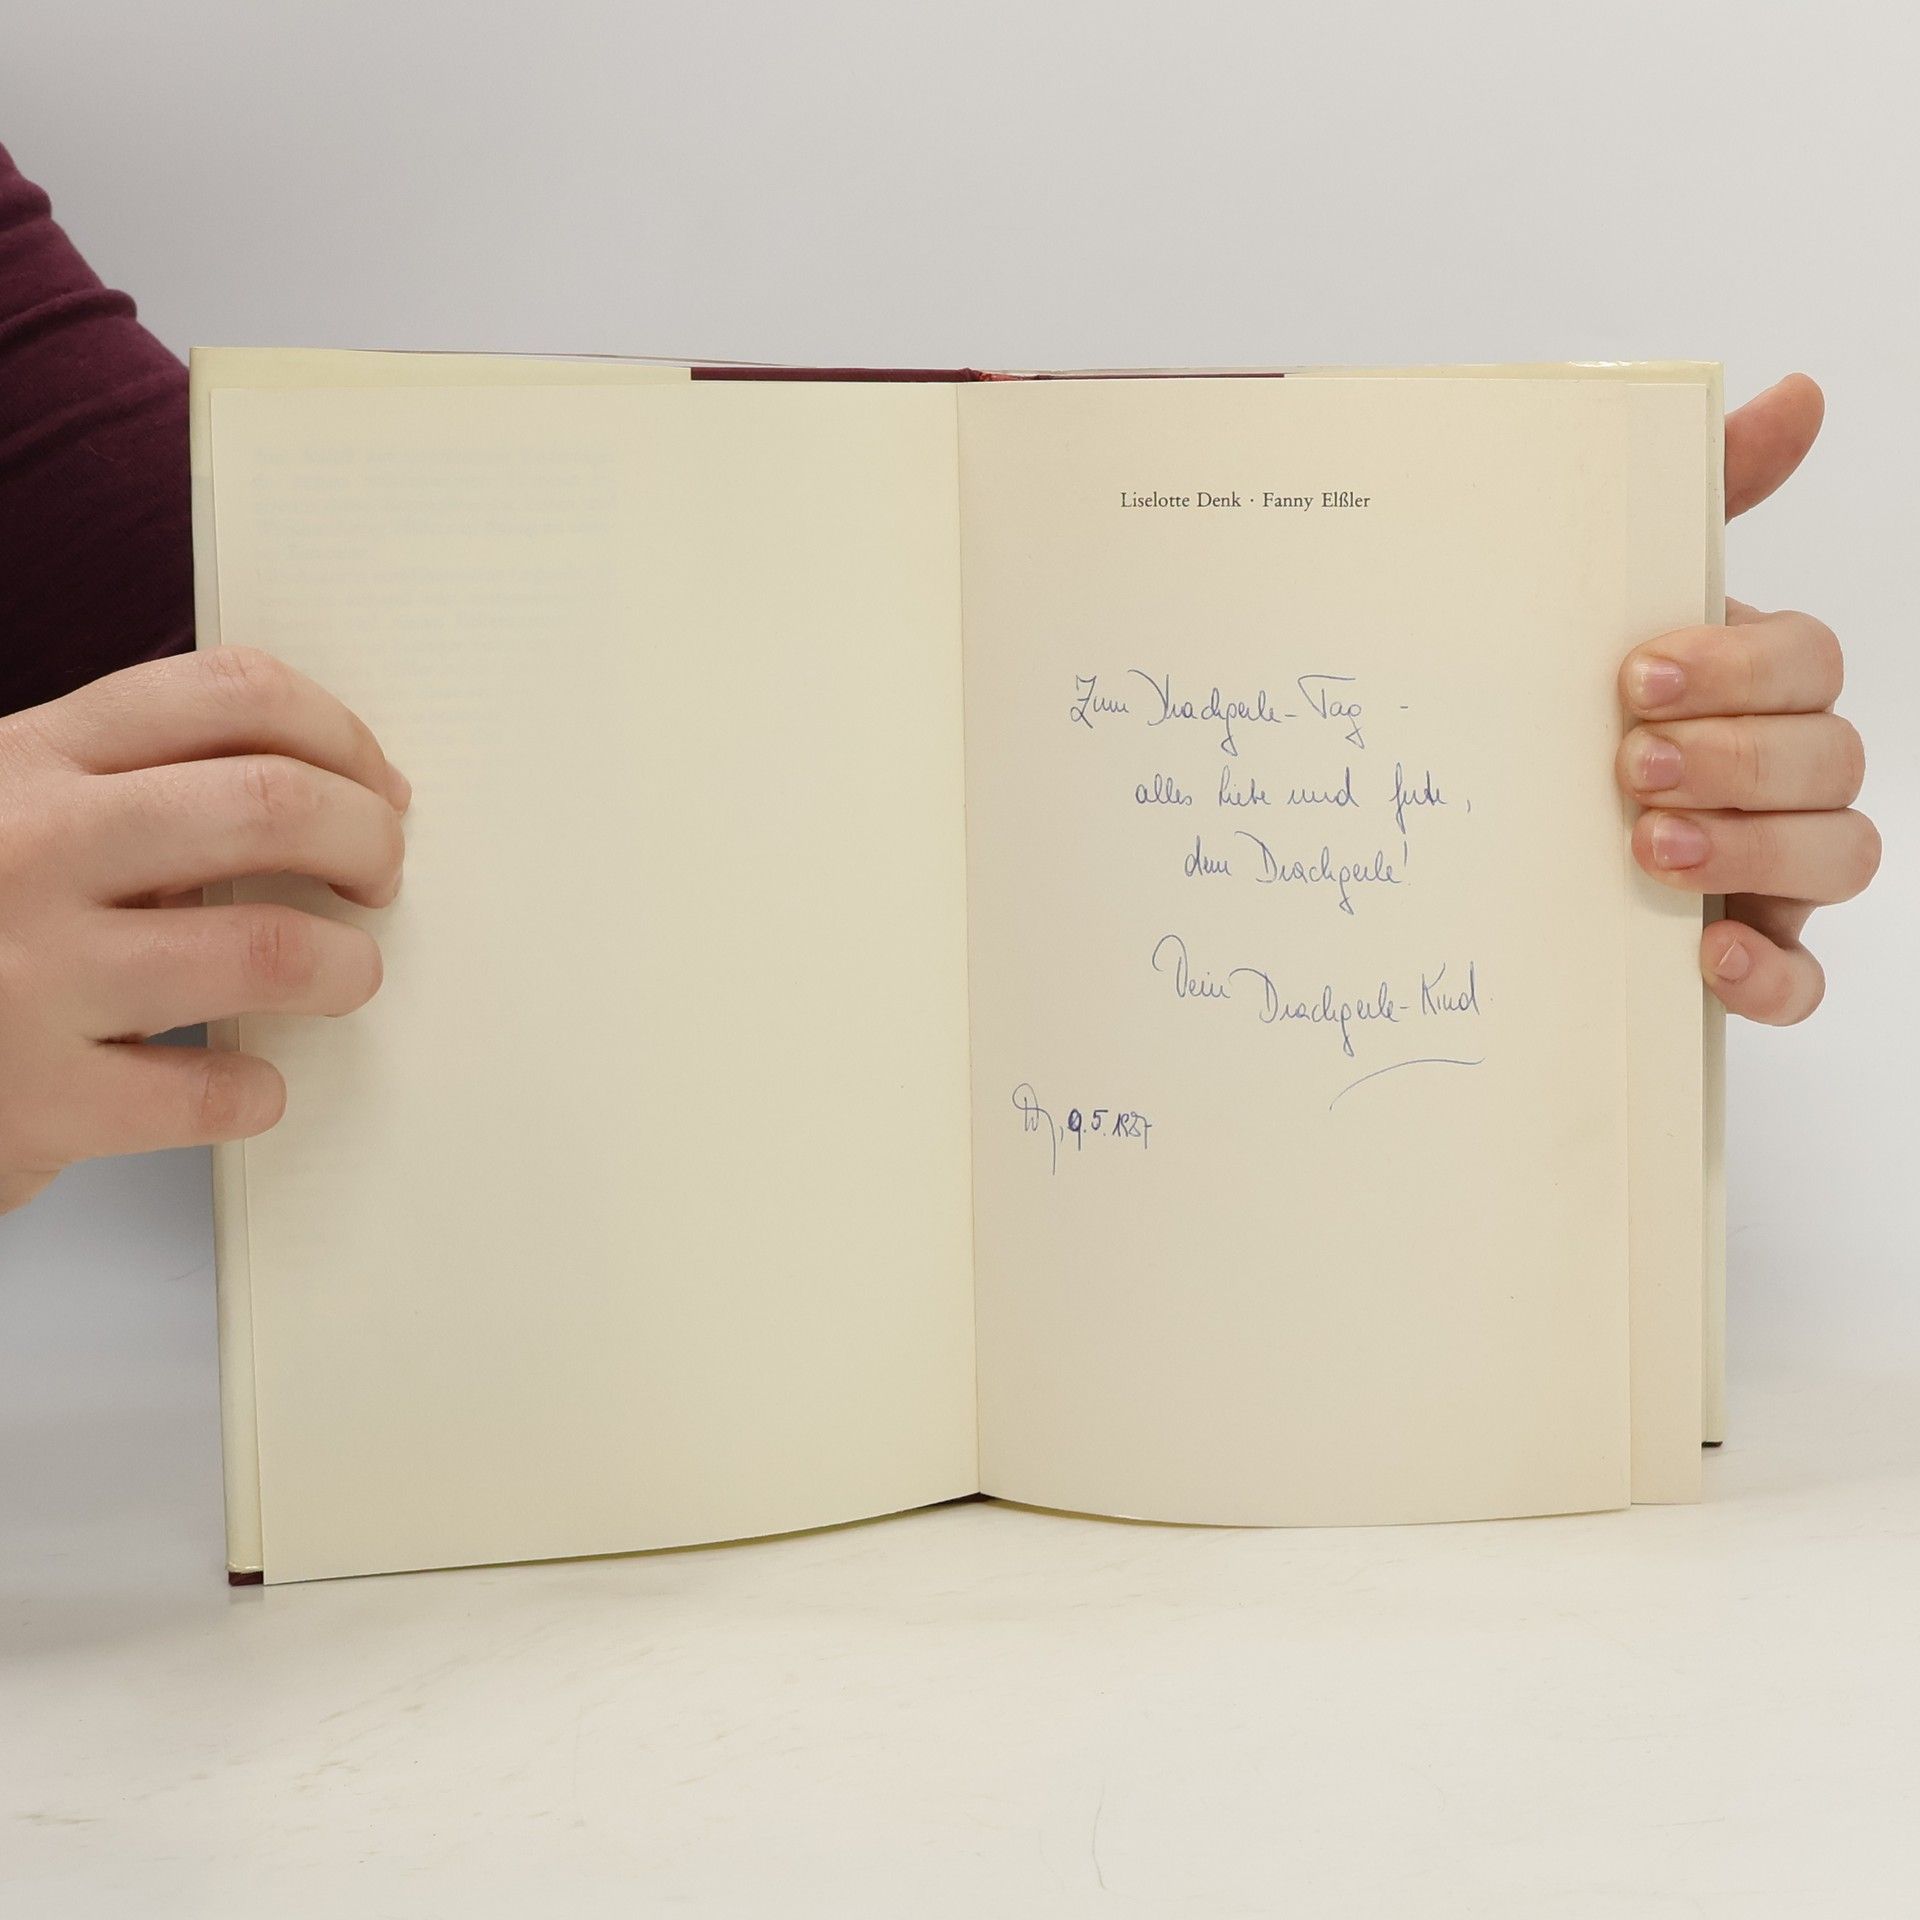 Liselotte Denk · Fanny Elßler
Zum Drachgerle-Tag -
alles Liebe und Gute,
dem Drachgerle!
Dein Drachgerle-Kind.
9.5.1987